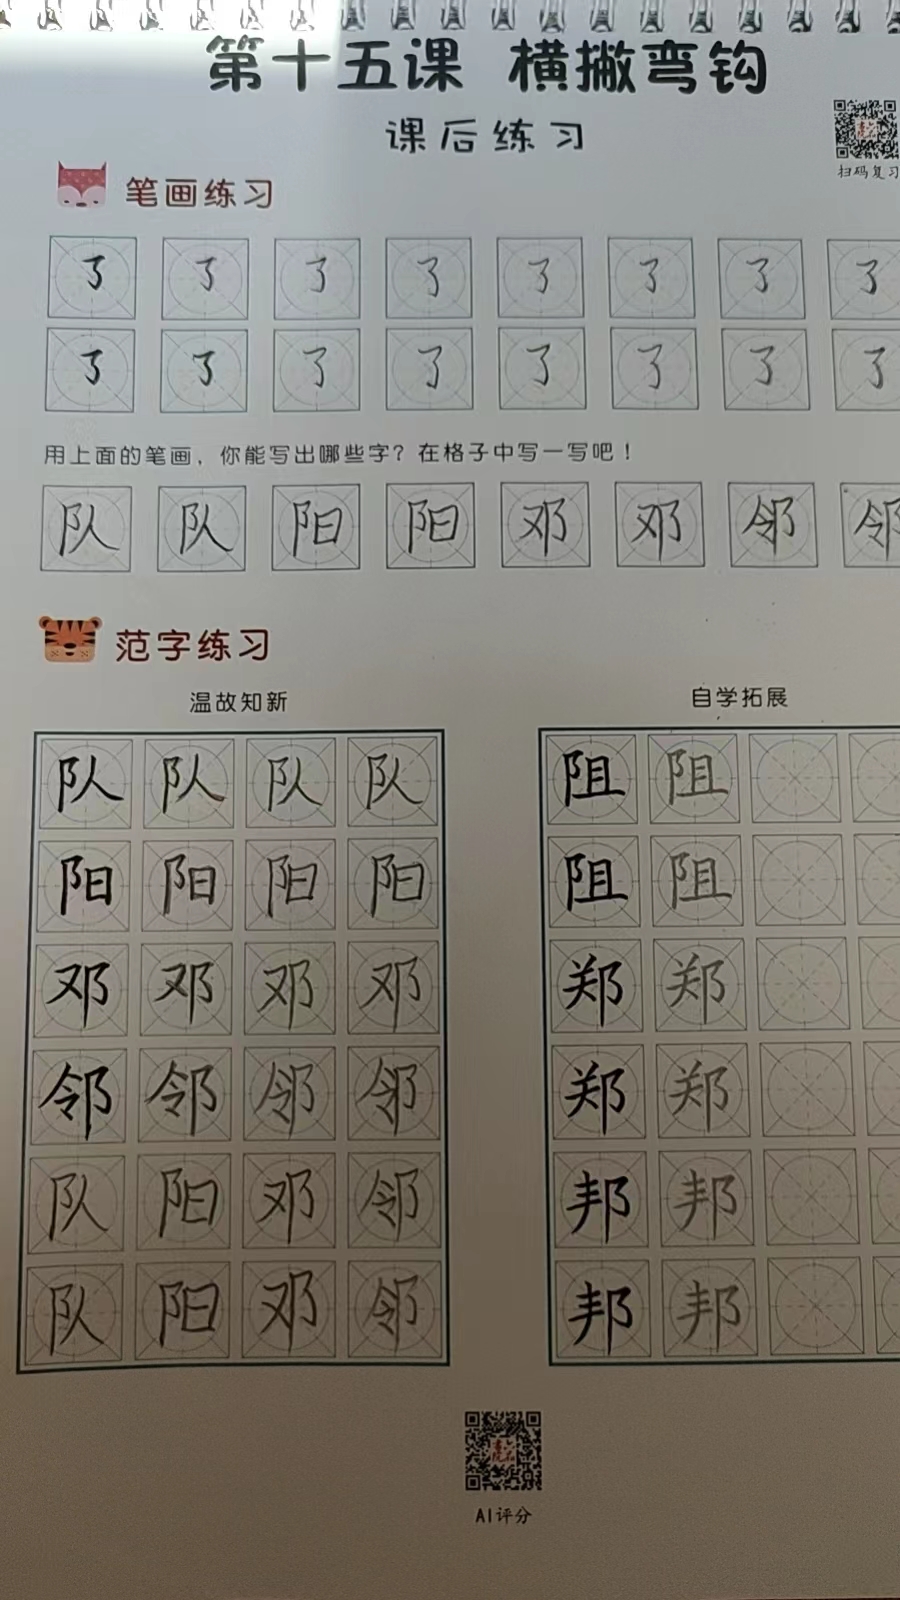 第十五课 横撇弯钩
课后练习
扫码复习
笔画练习
用上面的笔画，你能写出哪些字？在格子中写一写吧！
队 队 阳 阳 邓 邓 邻 邻
范字练习
温故知新
队 队 队 队
阳 阳 阳 阳
邓 邓 邓 邓
邻 邻 邻 邻
队 阳 邓 邻
队 阳 邓 邻
自学拓展
阻 阻
阻 阻
郑 郑
郑 郑
邦 邦
邦 邦
AI评分